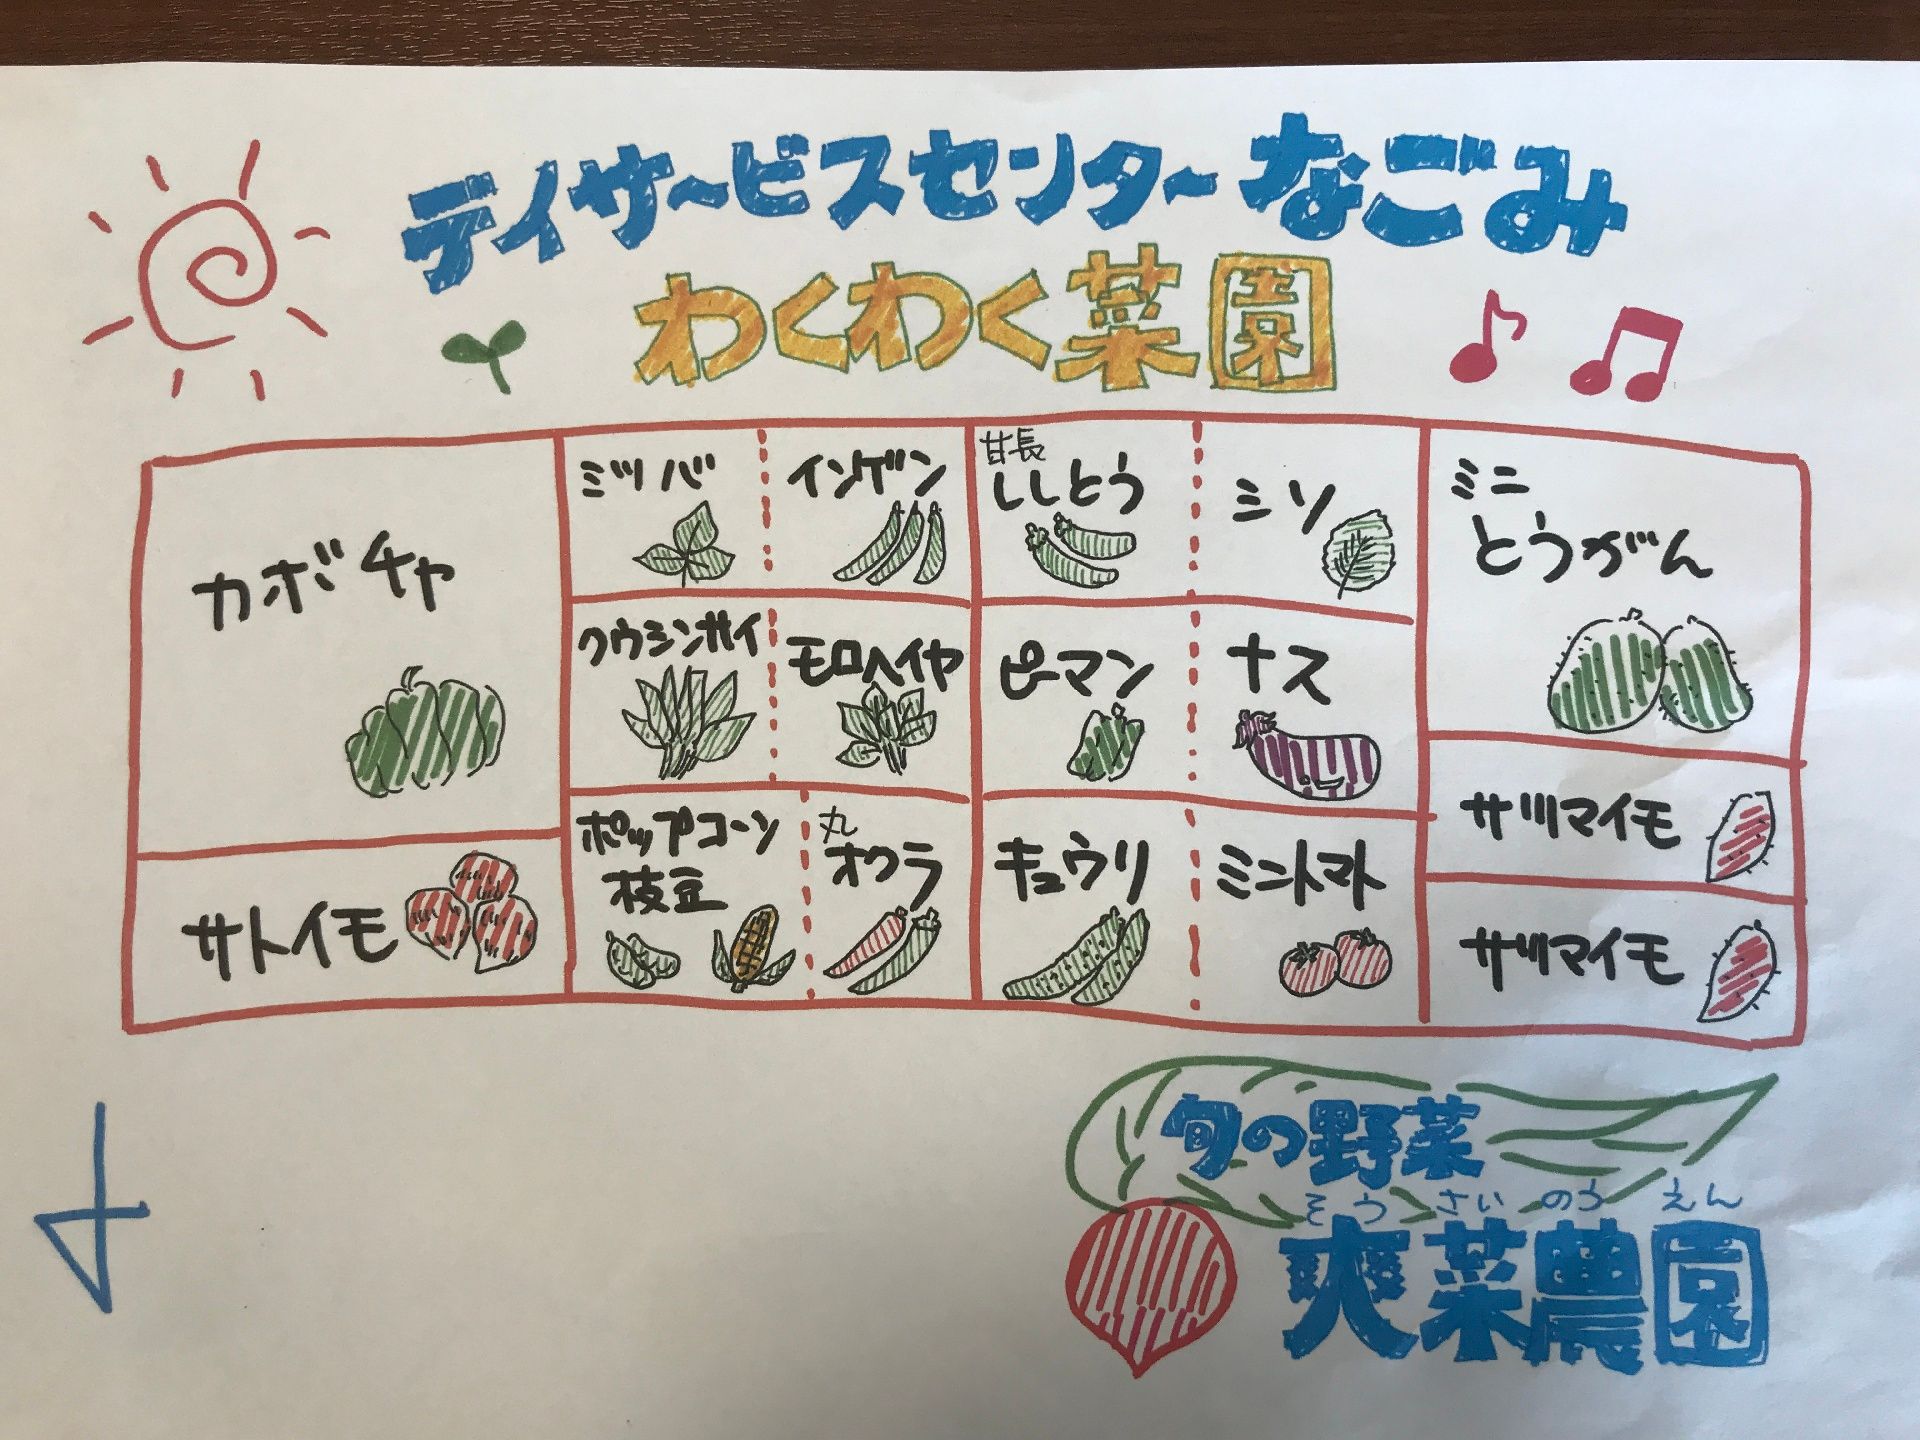 デイサービスセンターなごみ
わくわく菜園
カボチャ
サトイモ
ミツバ
インゲン
クウシンサイ
モロヘイヤ
ポップコーン
枝豆
丸
オクラ
甘長
ししとう
シソ
ピーマン
ナス
キュウリ
ミニトマト
ミニ
とうがん
サツマイモ
サツマイモ
旬の野菜
そうさいのうえん
爽菜農園